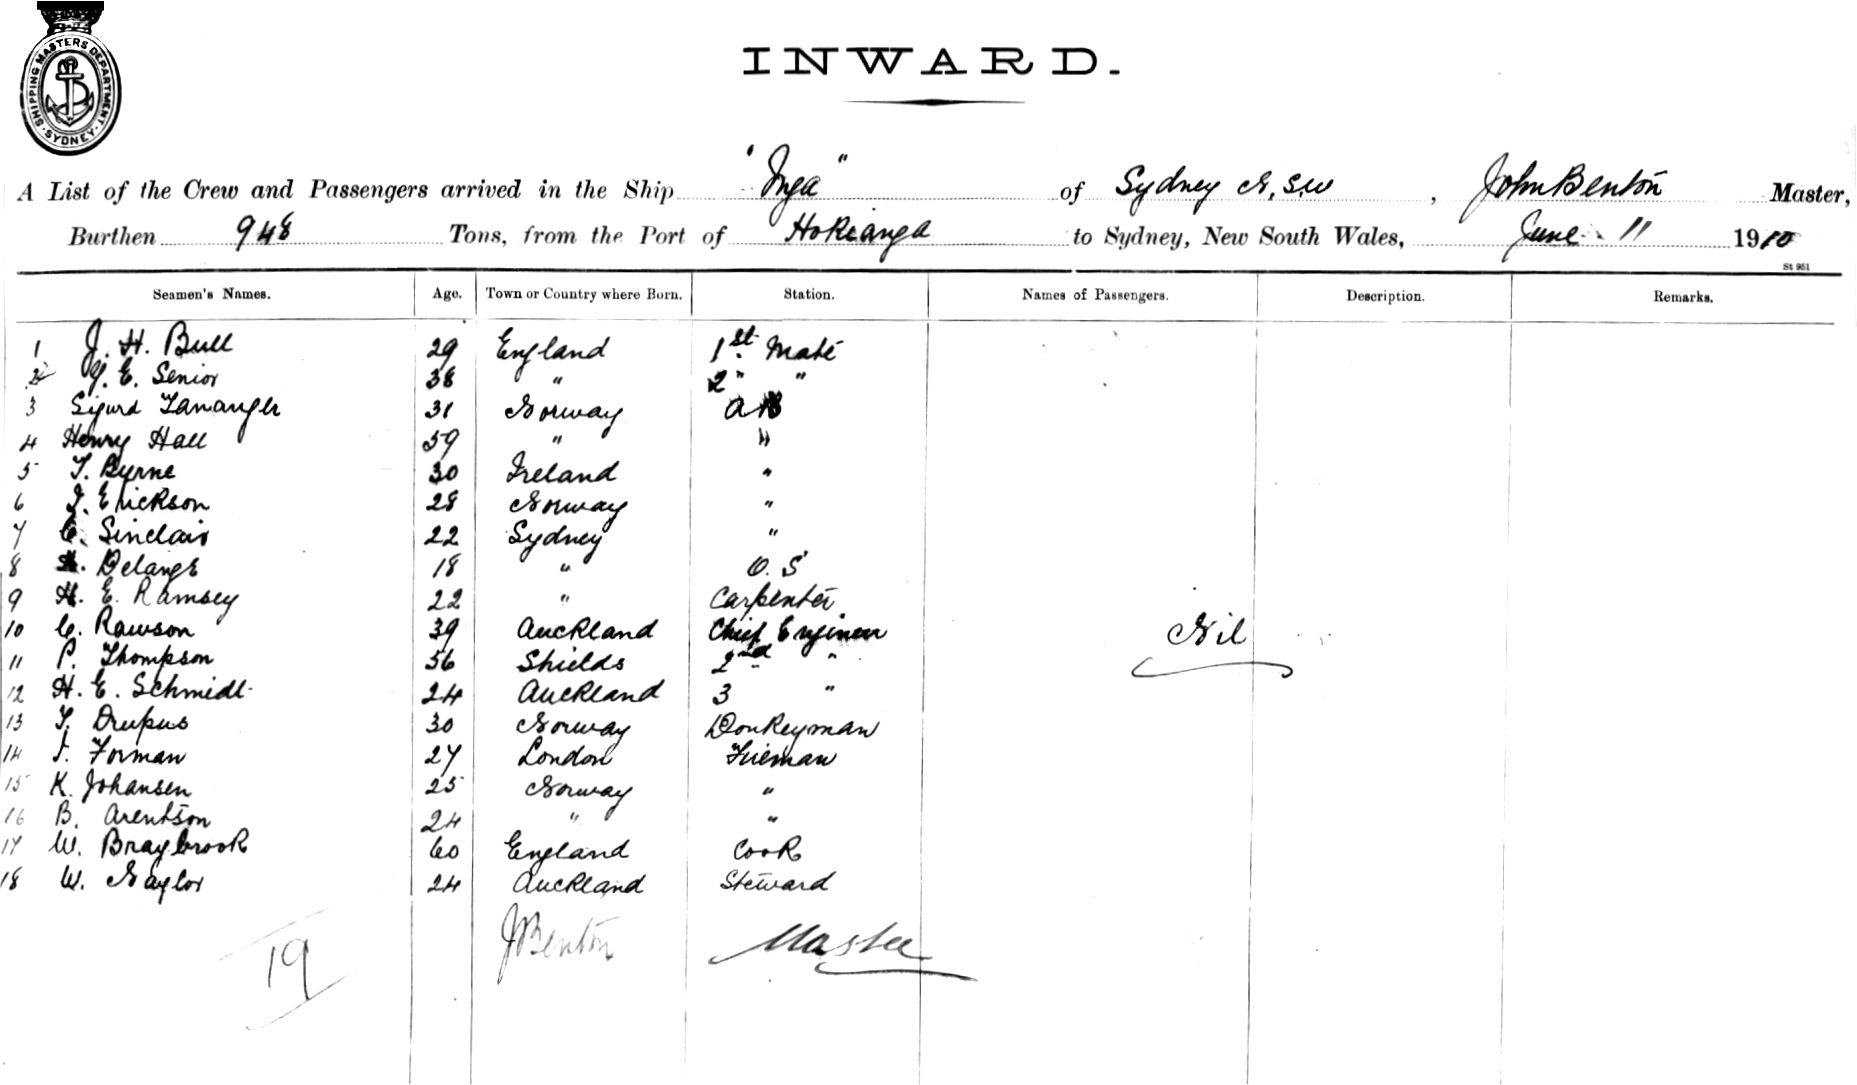 SHIPPING MASTERS DEPARTMENT · SYDNEY ·
INWARD.
A List of the Crew and Passengers arrived in the Ship "Inga" of Sydney N.S.W, John Benton Master,
Burthen 948 Tons, from the Port of Hokianga to Sydney, New South Wales, June 11 1910
St 951
Seamen's Names. Age. Town or Country where Born. Station. Names of Passengers. Description. Remarks.
1 J. H. Bull 29 England 1st Mate
2 E. Senior 38 " 2 " "
3 Sigurd 31 Norway AB
4 Henry Hall 59 " "
5 T. Byrne 30 Ireland "
6 J. Erickson 28 Norway "
7 C. Sinclair 22 Sydney "
8 Delange 18 " O. S
9 H. E. Ramsey 22 " Carpenter
10 C. Rawson 39 Auckland Chief Engineer Nil
11 P. Thompson 56 Shields 2nd "
12 H. E. Schmidt 24 Auckland 3 "
13 T. Drupus 30 Norway Donkeyman
14 Forman 27 London Fireman
15 K. Johansen 25 Norway "
16 B. Arentson 24 " "
17 W. Braybrook 60 England Cook
18 W. Naylor 24 Auckland Steward
19 J Benton Master